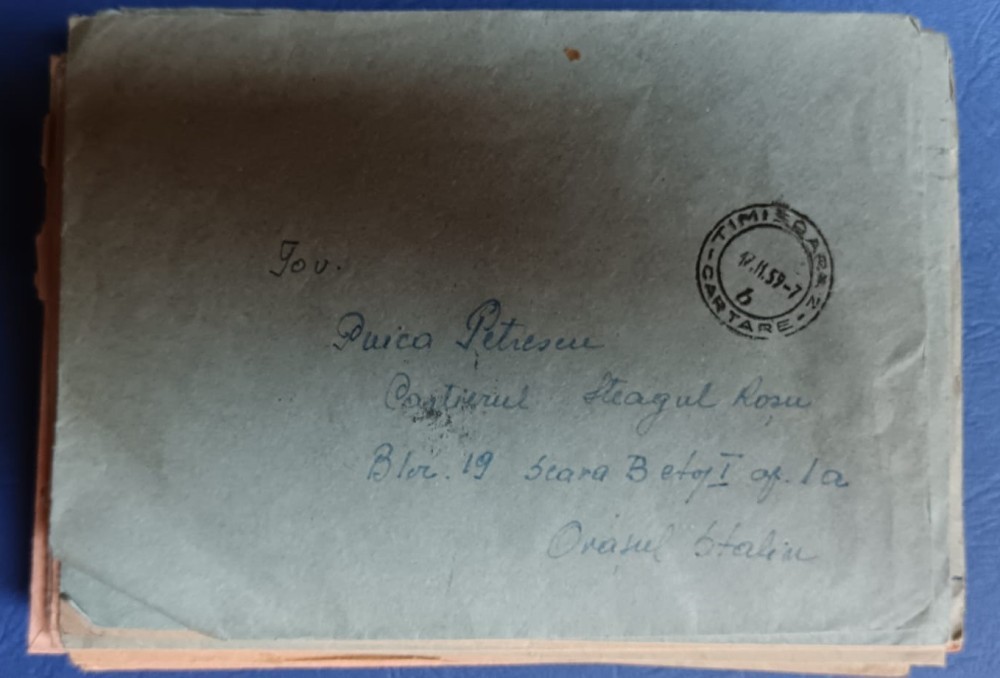 TIMIȘOARA 2
17.11.59-7
6
CARTARE
Tov.
Puica Petrescu
Cartierul Steagul Roșu
Bloc. 19 Scara B etaj I ap. 1a
Orașul Stalin